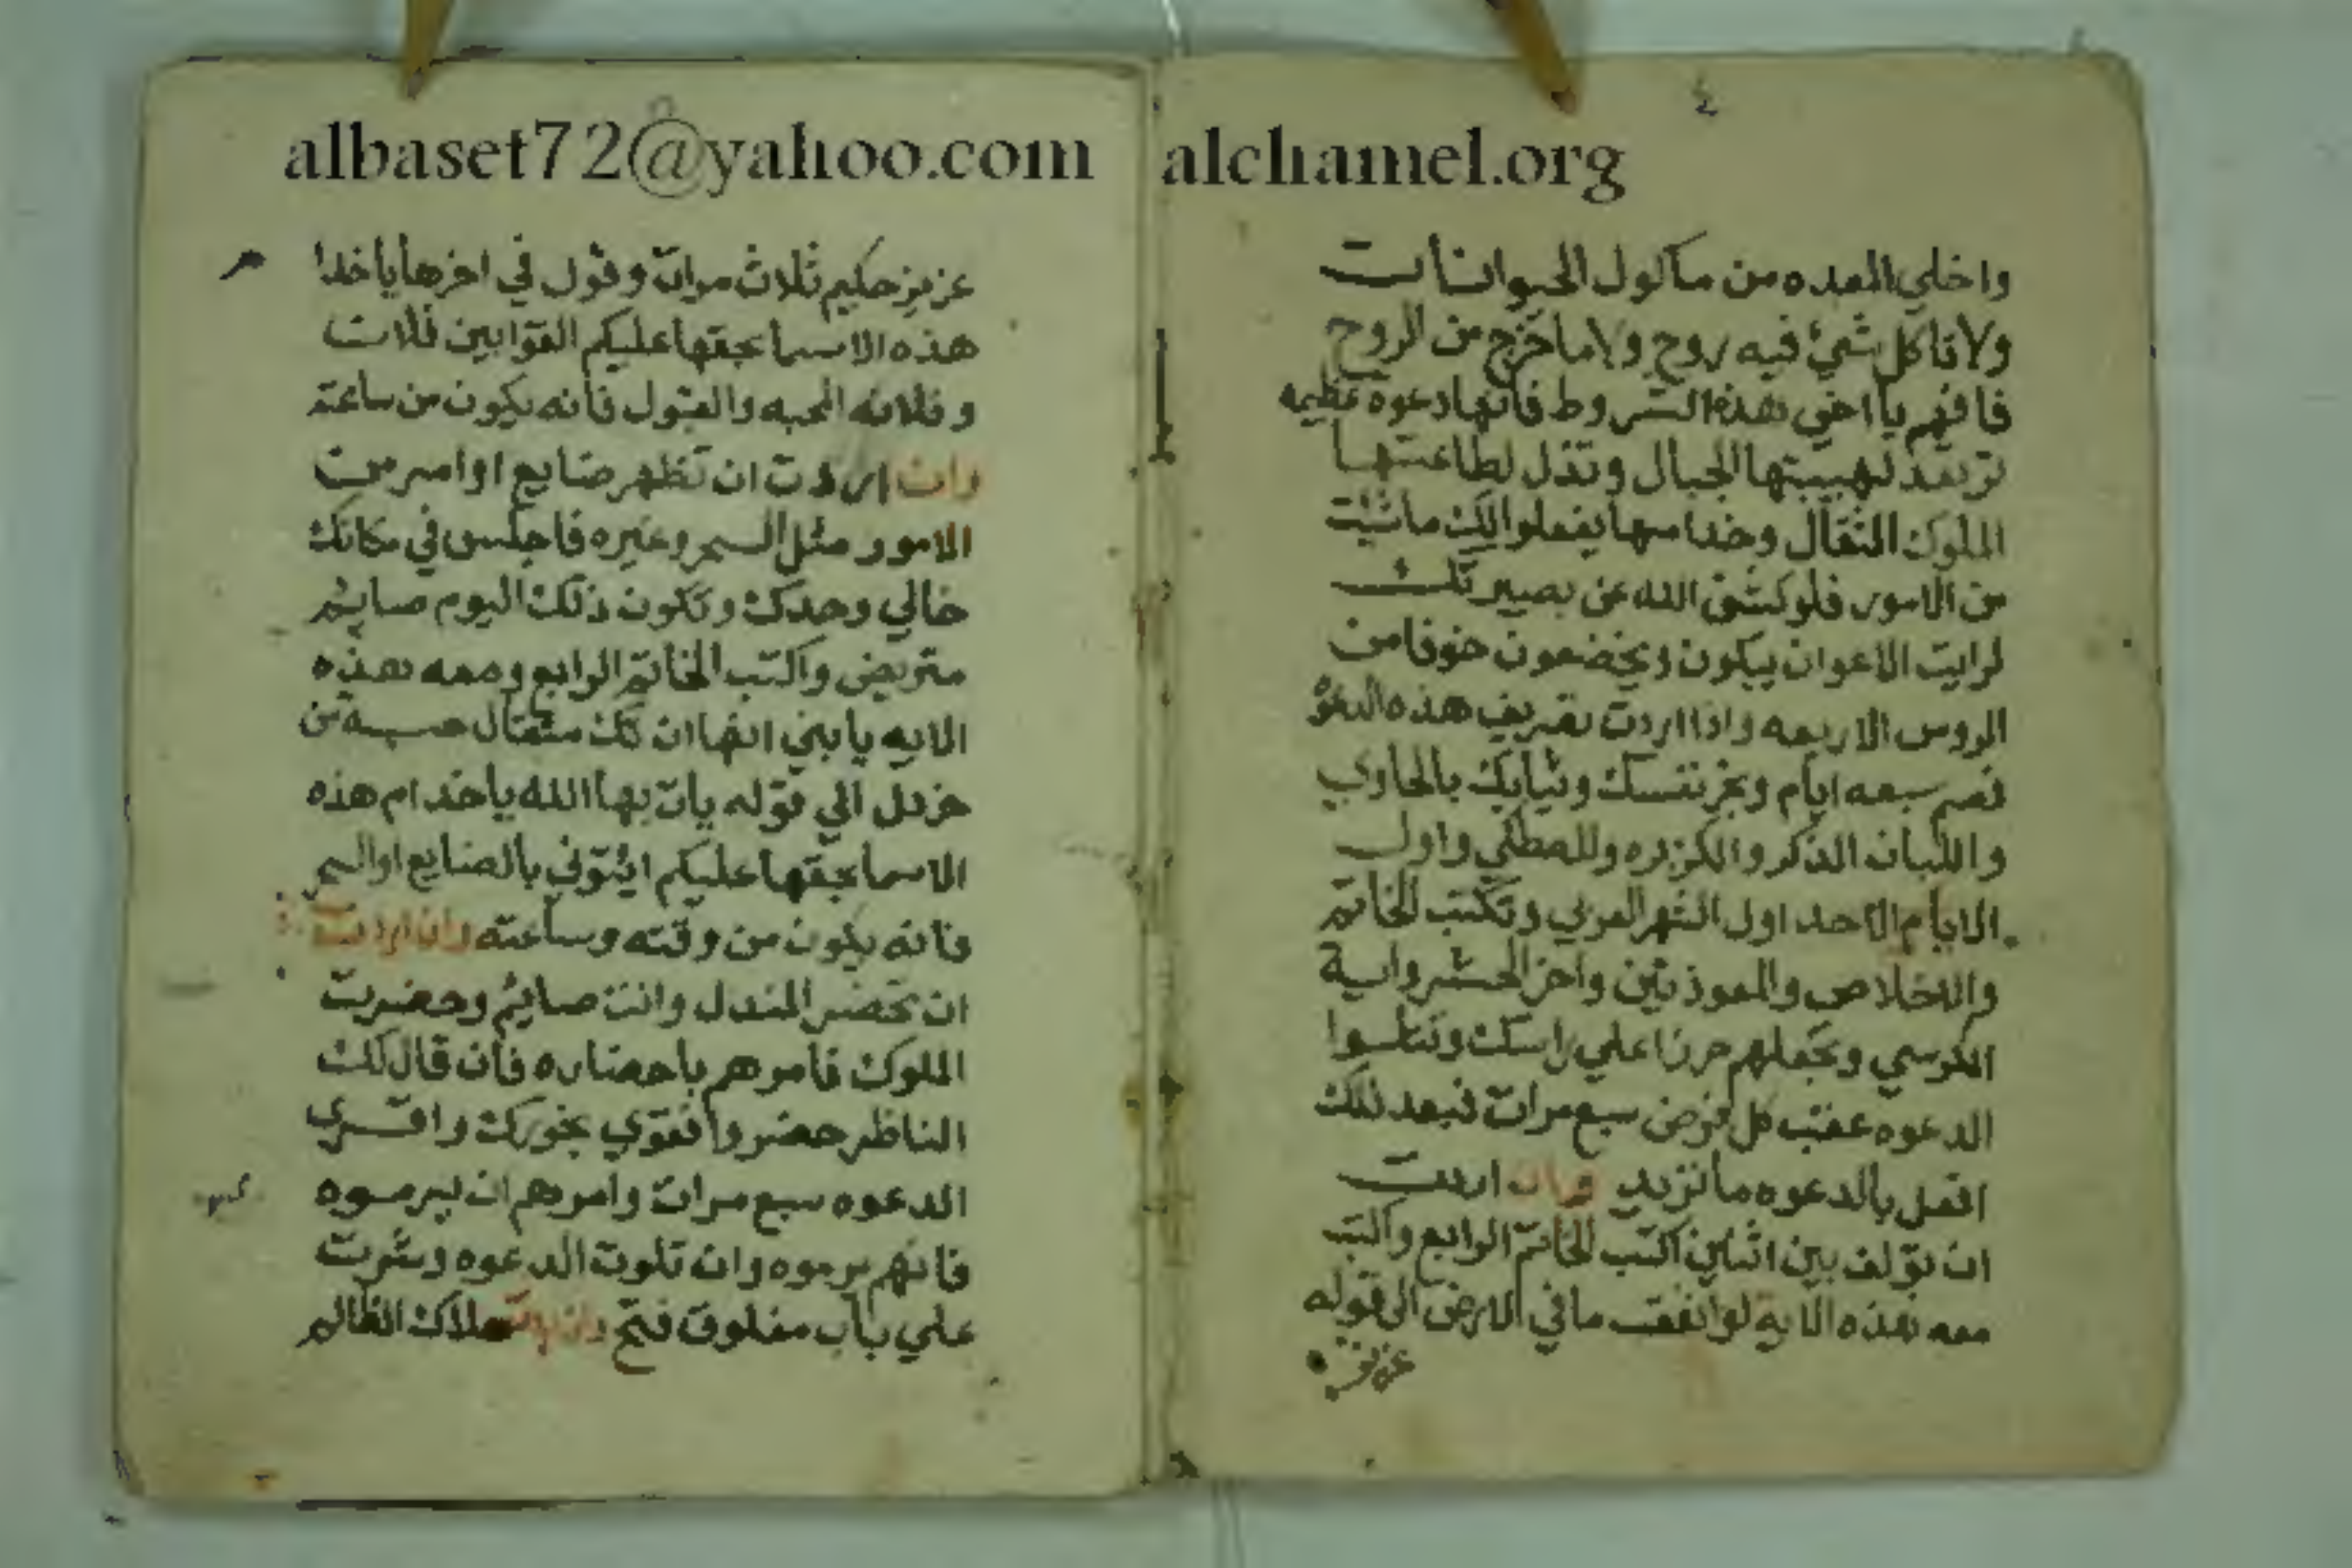 albaset72@yahoo.com alchamel.org
٤
واخلي المعده من ماكول الحيوانات
ولا تاكل شيئ فيه روح ولا ما خرج من الروح
فافهم يا اخي هذه الشروط فانها دعوه عظيمه
ترتعد لهيبتها الجبال وتذل لطاعتها
الملوك الثقال وخدامها يفعلوا لك ما شيت
من الامور فلو كشف الله عن بصيرتك
لرايت الاعوان يبكون ويخضعون خوفا من
الروس الاربعه واذا اردت تصريف هذه الدعوه
فصم سبعه ايام وبخر نفسك وثيابك بالجاوي
واللبان الذكر والكزبره والمصطكي واول
الايام الاحد اول الشهر العربي وتكتب الخاتم
والاخلاص والمعوذتين واخر الحشر واية
الكرسي وتجعلهم حرزا علي راسك وتتلوا
الدعوه عقب كل فرض سبع مرات فبعد ذلك
افعل بالدعوه ما تريد وان اردت
ان تولف بين اثنين اكتب الخاتم الرابع واكتب
معه هذه الاية لو انفقت ما في الارض الي قوله
عزيز
عزيز حكيم ثلاث مرات وقول في اخرها يا خدا
هذه الاسما بحقها عليكم القوا بين فلان
وفلانه المحبه والقبول فانه يكون من ساعته
وان اردت ان تظهر ضايع او امر من
الامور مثل السحر وغيره فاجلس في مكانك
خالي وحدك وتكون ذلك اليوم صايم
متريض واكتب الخاتم الرابع ومعه هذه
الايه يا بني انها ان تك مثقال حبة من
خردل الي قوله يات بها الله يا خدام هذه
الاسما بحقها عليكم ايتوني بالضايع او السحر
فانه يكون من وقته وساعته وان اردت
ان تحضر المندل وانت صايم وحضرت
الملوك فامرهم باحضاره فان قال لك
الناظر حضروا فقوي بخورك واقري
الدعوه سبع مرات وامرهم ان يرموه
فانهم يرموه وان تلوت الدعوه وشرت
علي باب مغلوق فتح وان اردت هلاك الظالم